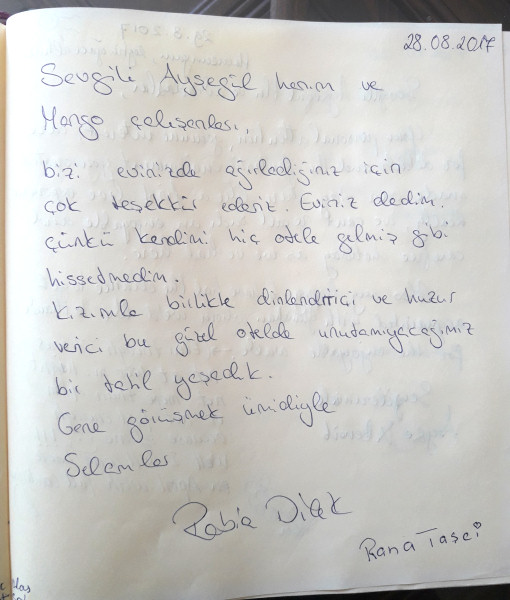 28.08.2017
Sevgili Ayşegül hanım ve
Mango çalışanları,
bizi evinizde ağırladığınız için
çok teşekkür ederiz. Eviniz dedim.
çünkü kendimi hiç otele gelmiş gibi
hissetmedim.
Kızımla birlikte dinlendirici ve huzur
verici bu güzel otelde unutamıyacağımız
bir tatil yaşadık.
Gene görüşmek ümidiyle
Selamlar
Rabia Dilek
Rana Taşci